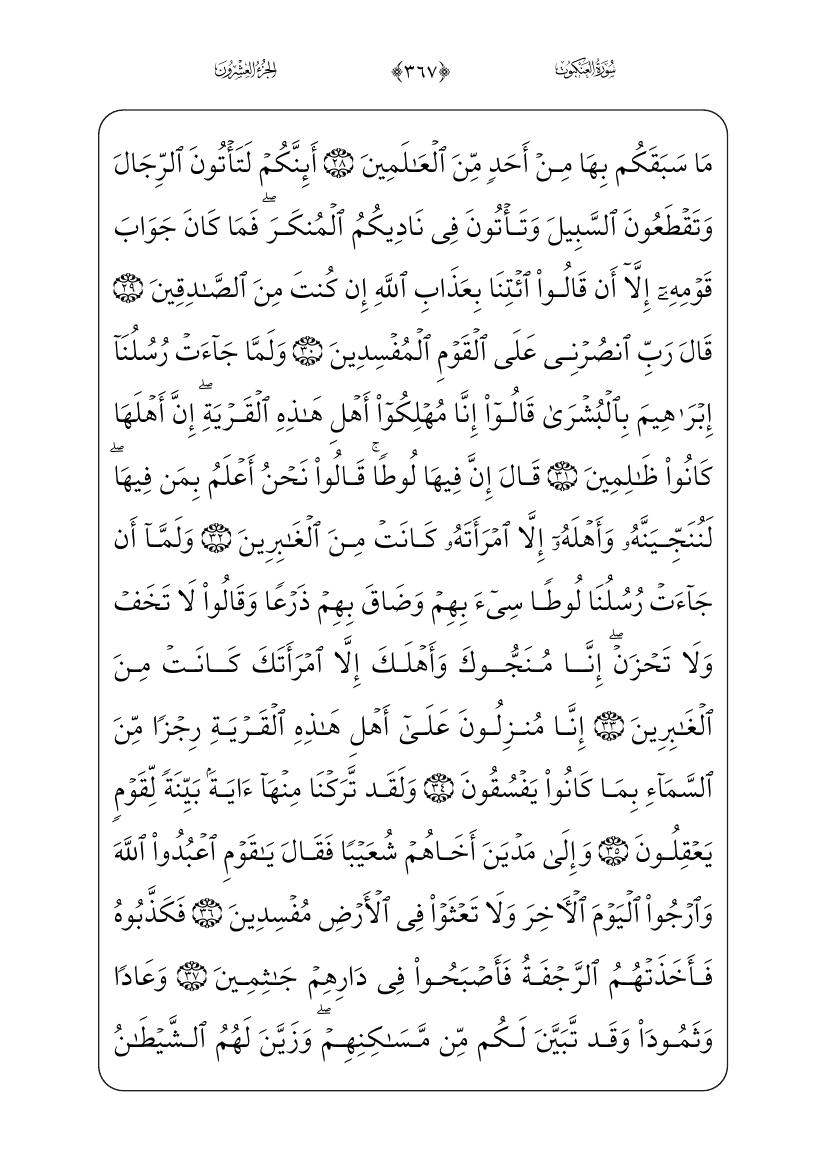 سُورَةُ العَنكَبُوت ﴿٣٦٧﴾ الجُزْءُ العِشْرُونَ
مَا سَبَقَكُم بِهَا مِنۡ أَحَدٖ مِّنَ ٱلۡعَٰلَمِينَ ٢٨ أَئِنَّكُمۡ لَتَأۡتُونَ ٱلرِّجَالَ
وَتَقۡطَعُونَ ٱلسَّبِيلَ وَتَأۡتُونَ فِي نَادِيكُمُ ٱلۡمُنكَرَۖ فَمَا كَانَ جَوَابَ
قَوۡمِهِۦٓ إِلَّآ أَن قَالُواْ ٱئۡتِنَا بِعَذَابِ ٱللَّهِ إِن كُنتَ مِنَ ٱلصَّٰدِقِينَ ٢٩
قَالَ رَبِّ ٱنصُرۡنِي عَلَى ٱلۡقَوۡمِ ٱلۡمُفۡسِدِينَ ٣٠ وَلَمَّا جَآءَتۡ رُسُلُنَآ
إِبۡرَٰهِيمَ بِٱلۡبُشۡرَىٰ قَالُوٓاْ إِنَّا مُهۡلِكُوٓاْ أَهۡلِ هَٰذِهِ ٱلۡقَرۡيَةِۖ إِنَّ أَهۡلَهَا
كَانُواْ ظَٰلِمِينَ ٣١ قَالَ إِنَّ فِيهَا لُوطٗاۚ قَالُواْ نَحۡنُ أَعۡلَمُ بِمَن فِيهَاۖ
لَنُنَجِّيَنَّهُۥ وَأَهۡلَهُۥٓ إِلَّا ٱمۡرَأَتَهُۥ كَانَتۡ مِنَ ٱلۡغَٰبِرِينَ ٣٢ وَلَمَّآ أَن
جَآءَتۡ رُسُلُنَا لُوطٗا سِيٓءَ بِهِمۡ وَضَاقَ بِهِمۡ ذَرۡعٗا وَقَالُواْ لَا تَخَفۡ
وَلَا تَحۡزَنۡۖ إِنَّا مُنَجُّوكَ وَأَهۡلَكَ إِلَّا ٱمۡرَأَتَكَ كَانَتۡ مِنَ
ٱلۡغَٰبِرِينَ ٣٣ إِنَّا مُنزِلُونَ عَلَىٰٓ أَهۡلِ هَٰذِهِ ٱلۡقَرۡيَةِ رِجۡزٗا مِّنَ
ٱلسَّمَآءِ بِمَا كَانُواْ يَفۡسُقُونَ ٣٤ وَلَقَد تَّرَكۡنَا مِنۡهَآ ءَايَةَۢ بَيِّنَةٗ لِّقَوۡمٖ
يَعۡقِلُونَ ٣٥ وَإِلَىٰ مَدۡيَنَ أَخَاهُمۡ شُعَيۡبٗا فَقَالَ يَٰقَوۡمِ ٱعۡبُدُواْ ٱللَّهَ
وَٱرۡجُواْ ٱلۡيَوۡمَ ٱلۡأٓخِرَ وَلَا تَعۡثَوۡاْ فِي ٱلۡأَرۡضِ مُفۡسِدِينَ ٣٦ فَكَذَّبُوهُ
فَأَخَذَتۡهُمُ ٱلرَّجۡفَةُ فَأَصۡبَحُواْ فِي دَارِهِمۡ جَٰثِمِينَ ٣٧ وَعَادٗا
وَثَمُودَاْ وَقَد تَّبَيَّنَ لَكُم مِّن مَّسَٰكِنِهِمۡۖ وَزَيَّنَ لَهُمُ ٱلشَّيۡطَٰنُ